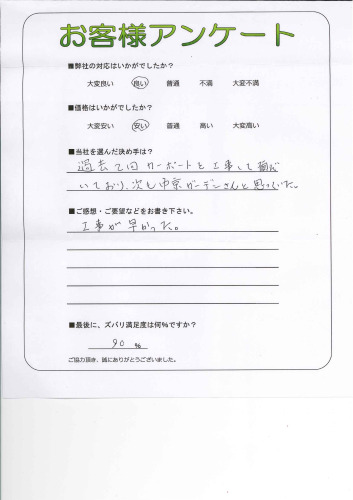 お客様アンケート
■弊社の対応はいかがでしたか?
大変良い 良い 普通 不満 大変不満
■価格はいかがでしたか?
大変安い 安い 普通 高い 大変高い
■当社を選んだ決め手は?
過去2回カーポートを工事して頂
いており、次も中京ガーデンさんと思っていた。
■ご感想・ご要望などをお書き下さい。
工事が早かった。
■最後に、ズバリ満足度は何%ですか?
90 %
ご協力頂き、誠にありがとうございました。